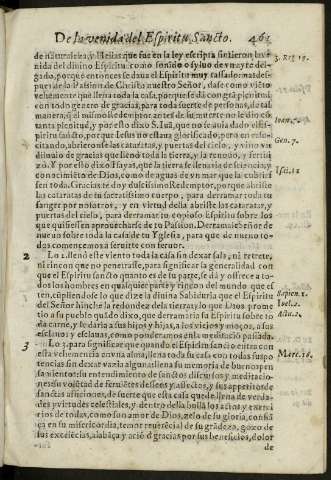 De la venida del Espiritu Sancto. 461
de naturaleza, y Helias que fue en la ley escripta sintieron la ve
nida del divino Espiritu, como sonido o sylvo de vn ayre del-
gado, porque entonces se daua el Espiritu muy tassado: mas des-
pues de la Passion de Christo nuestro Señor, dase como viẽto
vehemente que llena toda la casa, porque se dà con grã plenitud
con todo genero de gracias, para toda suerte de personas, de tal
manera, que el mismo Redemptor antes de su muerte no le dio cõ
tanta plenitud, y por esto dixo S. Iuã, que no se auia dado el Es-
piritu sancto, porque Iesus no estaua glorificado; pero en resu-
citando, abrieronse las cataratas, y puertas del cielo, y vino vn
diluuio de gracias que llenò toda la tierra, y la renouò, y fertili
zò. Y por esso dixo Isayas, que la tierra se llenaria de sciencia, y
conocimiẽto de Dios, como de aguas de vn mar que la cubries
sen toda. Gracias te doy dulcissimo Redemptor, porque abriste
las cataratas de tu sacratissimo cuerpo, para derramar toda tu
sangre por nosotros, y en virtud della abriste las cataratas, y
puertas del cielo, para derramar tu copioso Espiritu sobre los
que quisiessen aprouecharse de tu Passion. Derramale Señor de
nueuo sobre toda la casa de tu Yglesia, para que de nueuo to-
dos comencemos a seruirte con feruor.
2 Lo 2. llenò este viento toda la casa sin dexar sala, ni retrete,
ni rincon que no penetrasse, para significar la generalidad con
que el Espiritu sancto quanto es de su parte, se dà y offrece a to-
dos los hombres en qualquier parte y rincon del mundo que es
ten, cumpliendose lo que dize la diuina Sabiduria que el Espiritu
del Señor hinche la redondez dela tierra; y lo que Dios prome
tio a su pueblo quãdo dixo, que derramaria su Espiritu sobre to
da carne, y se daria a sus hijos y hijas, a los viejos y moços, a sus
esclauos y esclauas, como ponderamos en la meditaciõ passada.
3 Lo 3. para significar que quando el Espiritu sancto entra con
esta vehemencia en vna alma, llena toda su casa con todas sus po
tencias sin dexar vazia alguna, llena su memoria de buenos pen
samientos: su entendimiento de sanctos discursos, y meditacio-
nes: su volũtad de feruiẽtes desseos y afectos, y sus appetitos de
sanctas aficiones, de suerte que esta casa quede llena de verda-
des y virtudes celestiales, y dentro della bullã los actos y exerci
cios de todas, como son amor de Dios, zelo de su gloria, confiã
ça en su misericordia, temor reuerẽcial de su grãdeza, gozo de
sus excelẽcias, alabãça y acciõ de gracias por sus beneficios, dolor
de
3. Reg. 19.
Ioan. 7.
Gen. 7.
Isai. 12
Sapien. 1.
Ioel. 2.
Actu. 2.
Marc. 16.